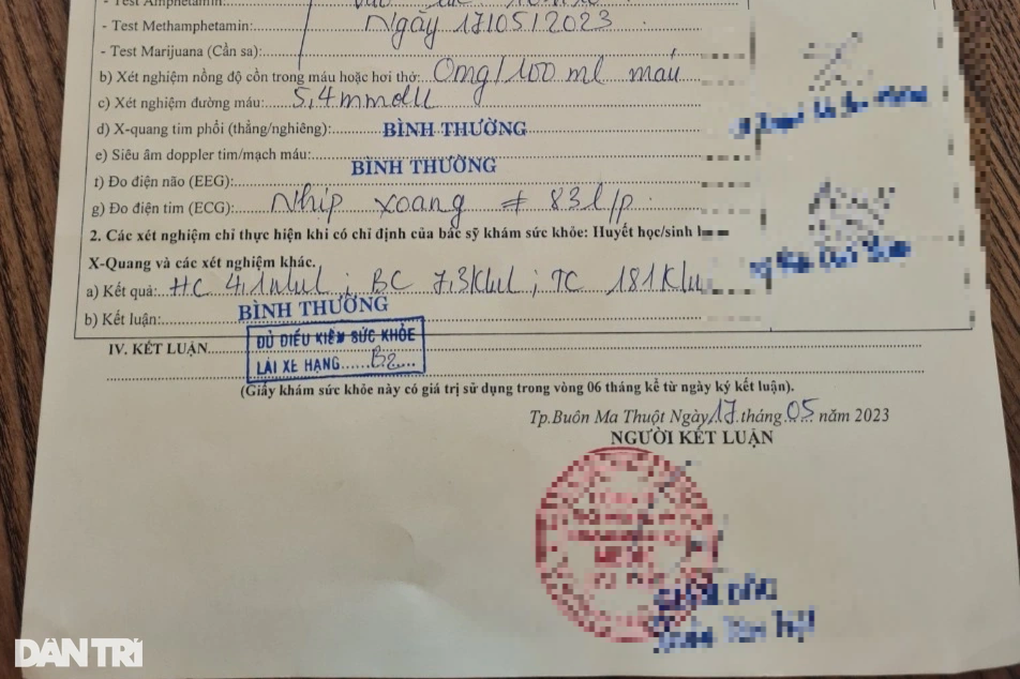 - Test Amphetamin:
- Test Methamphetamin: Ngày 17/05/2023
- Test Marijuana (Cần sa):
b) Xét nghiệm nồng độ cồn trong máu hoặc hơi thở: 0mg/100 ml máu
c) Xét nghiệm đường máu: 5,4mmol/l
d) X-quang tim phổi (thẳng/nghiêng): BÌNH THƯỜNG
e) Siêu âm doppler tim/mạch máu:
f) Đo điện não (EEG): BÌNH THƯỜNG
g) Đo điện tim (ECG): Nhịp xoang # 83 l/p
2. Các xét nghiệm chỉ thực hiện khi có chỉ định của bác sỹ khám sức khỏe: Huyết học/sinh
X-Quang và các xét nghiệm khác.
a) Kết quả: HC 4,1 ; BC 7,3K/ul ; TC 181K/u
b) Kết luận: BÌNH THƯỜNG
IV. KẾT LUẬN
ĐỦ ĐIỀU KIỆN SỨC KHỎE
LÁI XE HẠNG......B2.....
(Giấy khám sức khỏe này có giá trị sử dụng trong vòng 06 tháng kể từ ngày ký kết luận).
Tp.Buôn Ma Thuột Ngày 17 tháng 05 năm 2023
NGƯỜI KẾT LUẬN
DÂN TRÍ